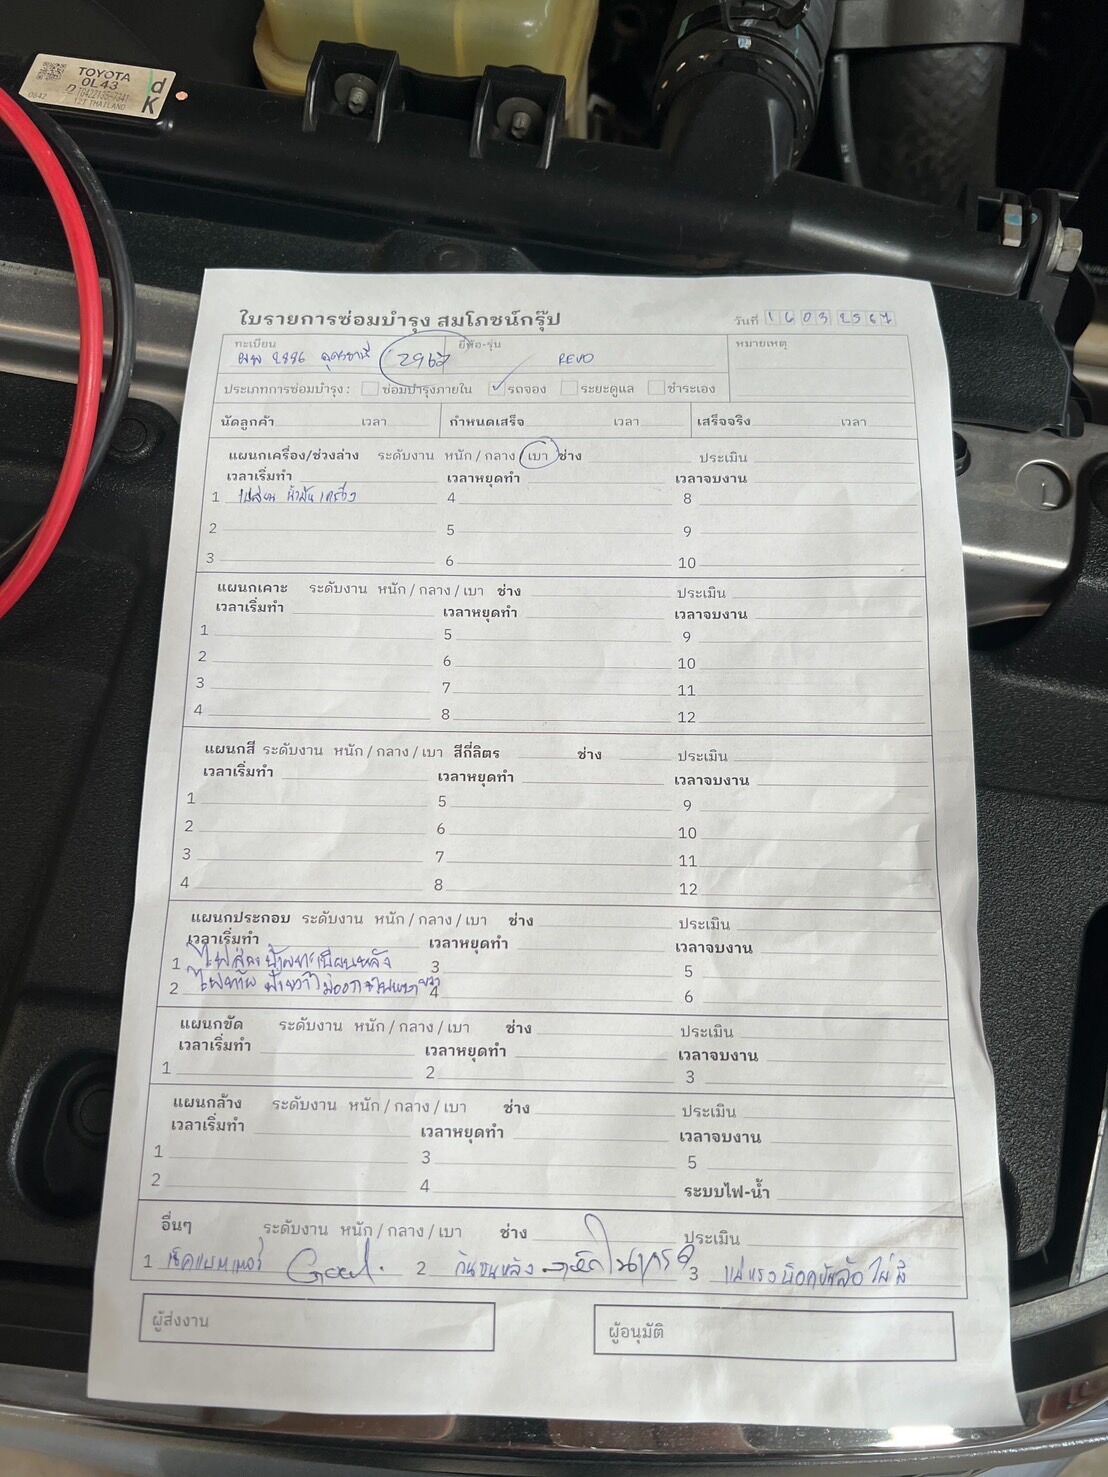 TOYOTA
0L43
12T THAILAND
0642
d
K
ใบรายการซ่อมบำรุง สมโภชน์กรุ๊ป
วันที่ 16032567
ทะเบียน ยี่ห้อ-รุ่น หมายเหตุ
2967 REVO
ประเภทการซ่อมบำรุง : ซ่อมบำรุงภายใน ✓ รถจอง ระยะดูแล ชำระเอง
นัดลูกค้า เวลา กำหนดเสร็จ เวลา เสร็จจริง เวลา
แผนกเครื่อง/ช่วงล่าง ระดับงาน หนัก / กลาง / เบา ช่าง ประเมิน
เวลาเริ่มทำ เวลาหยุดทำ เวลาจบงาน
1 เปลี่ยน น้ำมันเครื่อง 4 8
2 5 9
3 6 10
แผนกเคาะ ระดับงาน หนัก / กลาง / เบา ช่าง ประเมิน
เวลาเริ่มทำ เวลาหยุดทำ เวลาจบงาน
1 5 9
2 6 10
3 7 11
4 8 12
แผนกสี ระดับงาน หนัก / กลาง / เบา สีกี่ลิตร ช่าง ประเมิน
เวลาเริ่มทำ เวลาหยุดทำ เวลาจบงาน
1 5 9
2 6 10
3 7 11
4 8 12
แผนกประกอบ ระดับงาน หนัก / กลาง / เบา ช่าง ประเมิน
เวลาเริ่มทำ เวลาหยุดทำ เวลาจบงาน
1 ไฟส่องป้ายทะเบียนหลัง 3 5
2 4 6
แผนกขัด ระดับงาน หนัก / กลาง / เบา ช่าง ประเมิน
เวลาเริ่มทำ เวลาหยุดทำ เวลาจบงาน
1 2 3
แผนกล้าง ระดับงาน หนัก / กลาง / เบา ช่าง ประเมิน
เวลาเริ่มทำ เวลาหยุดทำ เวลาจบงาน
1 3 5
2 4 ระบบไฟ-น้ำ
อื่นๆ ระดับงาน หนัก / กลาง / เบา ช่าง ประเมิน
1 เช็คแบทเตอรี่ Good. 2 กันชนหลัง 3 แม่แรง บ๊อคขันล้อ ไม่มี
ผู้ส่งงาน ผู้อนุมัติ